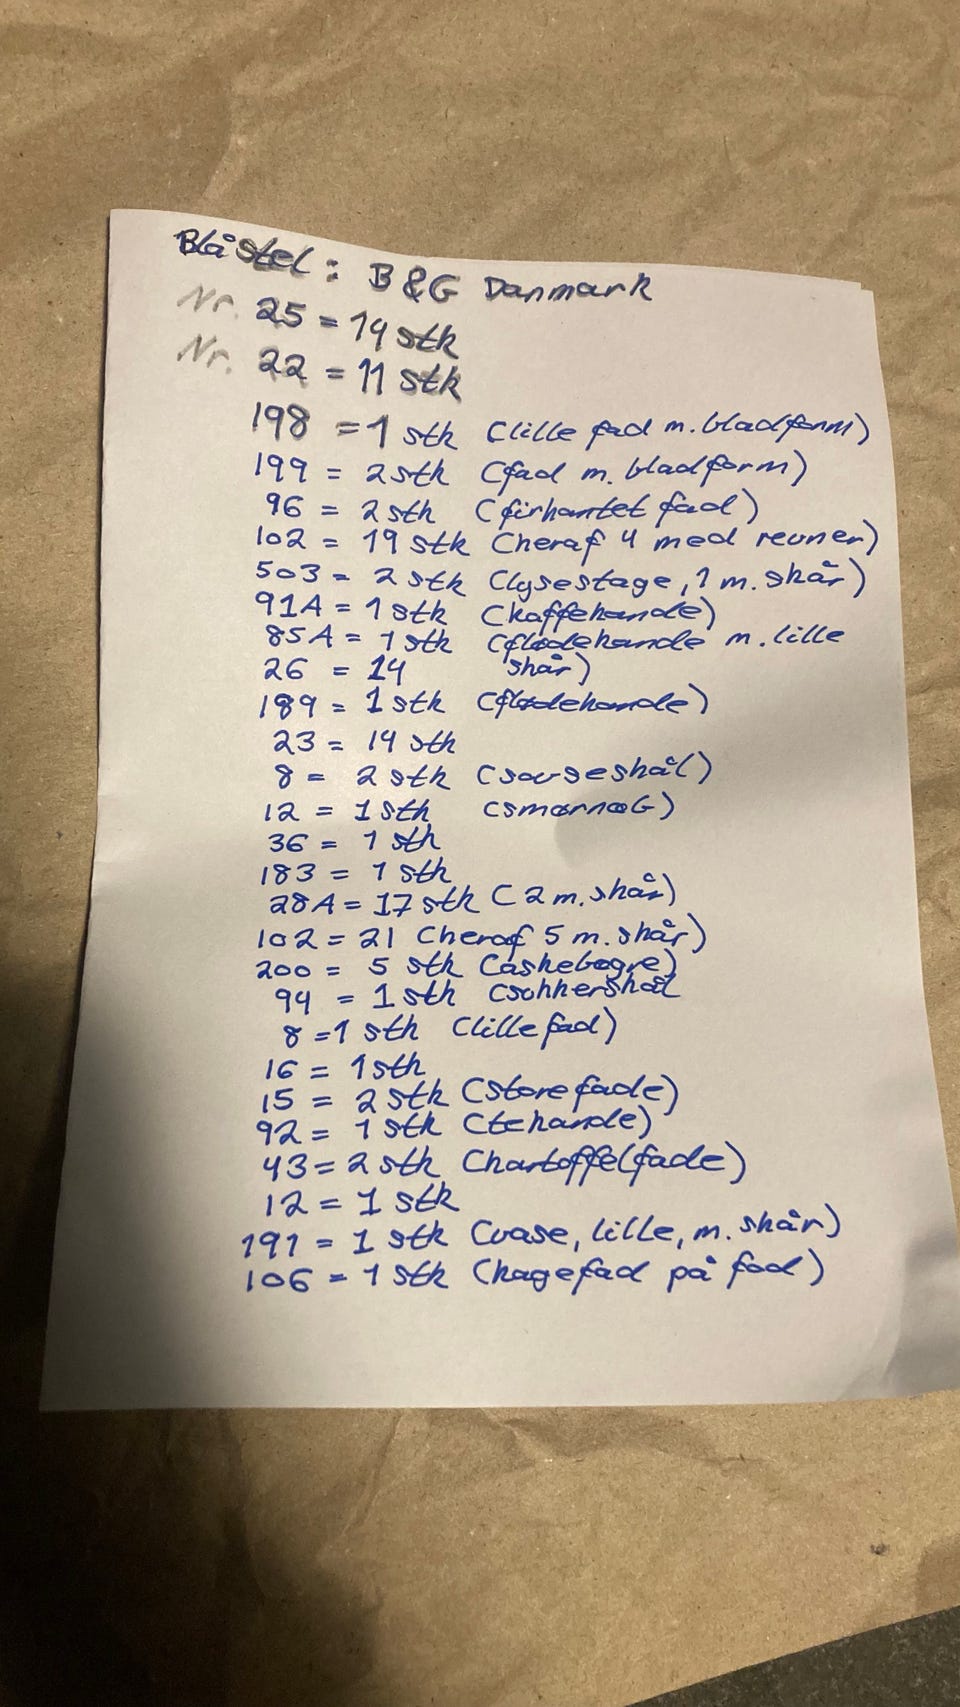 Blåstel: B&G Danmark
Nr. 25 = 14 stk
Nr. 22 = 11 stk
198 = 1 stk (lille fad m. bladform)
199 = 2 stk (fad m. bladform)
96 = 2 stk (firkantet fad)
102 = 19 stk (heraf 4 med revner)
503 = 2 stk (lysestage, 1 m. skår)
91A = 1 stk (kaffekande)
85A = 1 stk (flødekande m. lille
26 = 14 skår)
189 = 1 stk (flødekande)
23 = 14 stk
8 = 2 stk (sovseskål)
12 = 1 stk (smørnæb)
36 = 1 stk
183 = 1 stk
28A = 17 stk (2 m. skår)
102 = 21 (heraf 5 m. skår)
200 = 5 stk (askebægre)
94 = 1 stk (sokkerskål
8 = 1 stk (lille fad)
16 = 1 stk
15 = 2 stk (store fade)
92 = 1 stk (tekande)
43 = 2 stk (kartoffelfade)
12 = 1 stk
191 = 1 stk (vase, lille, m. skår)
106 = 1 stk (kagefad på fod)